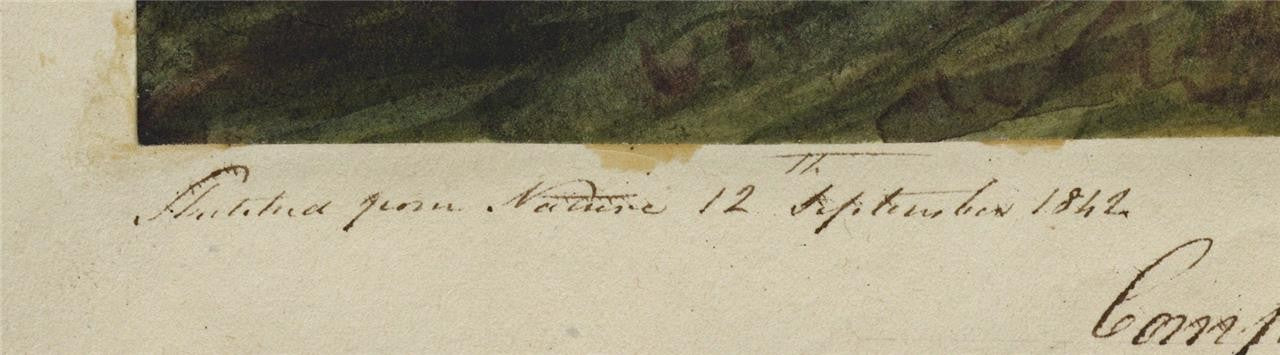 Sketched from Nature 12th September 1842.
Comp